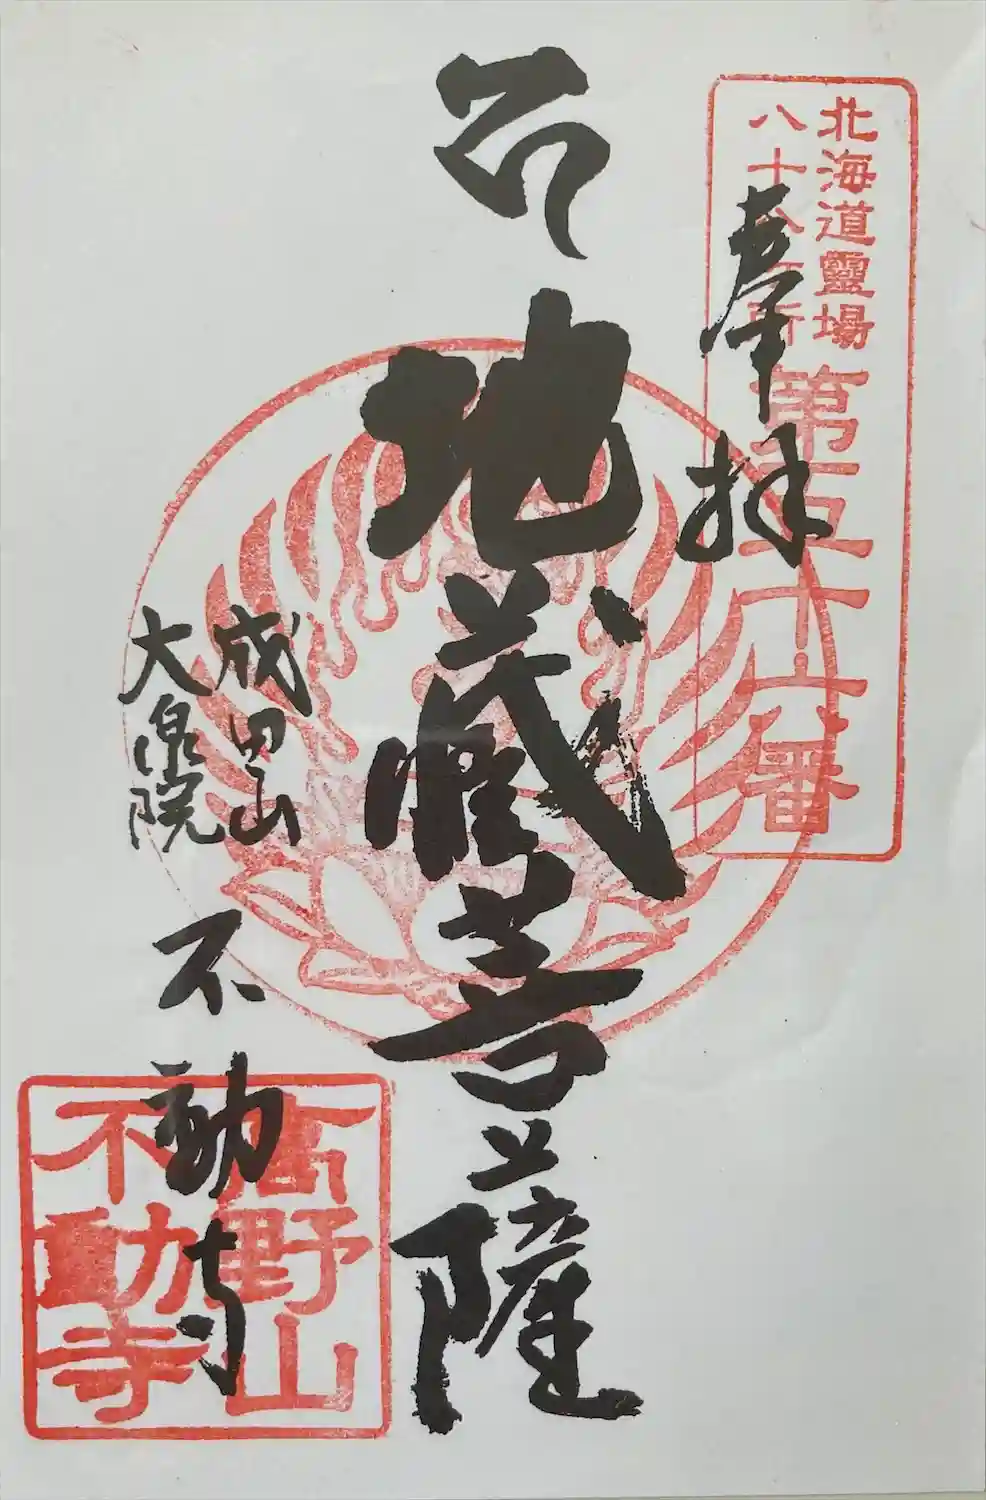 北海道靈場
八十八ヶ所
第五十番
奉拝
地蔵菩薩
成田山
大泉院
不動寺
高野山
不動寺